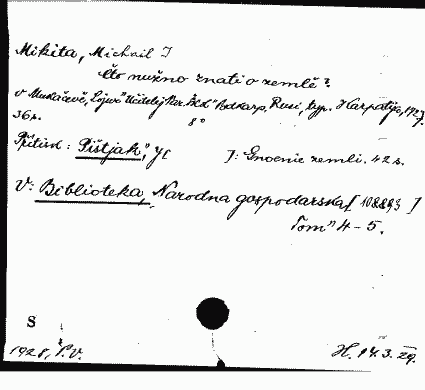 Mikita, Michail I
Čto nužno znati o zemlě?
v Mukačevě, "Sojuz" Učitelej Nar. Škol" Podkarp. Rusi, typ. "Karpatija", 1927
36 s. 8°
Přitisk: "Pištjak", I: Gnoenie zemli. 42 s.
V: Biblioteka, Narodna gospodarska [108893]
Tom" 4-5.
S
1928, P.V. H. 14.3.29.